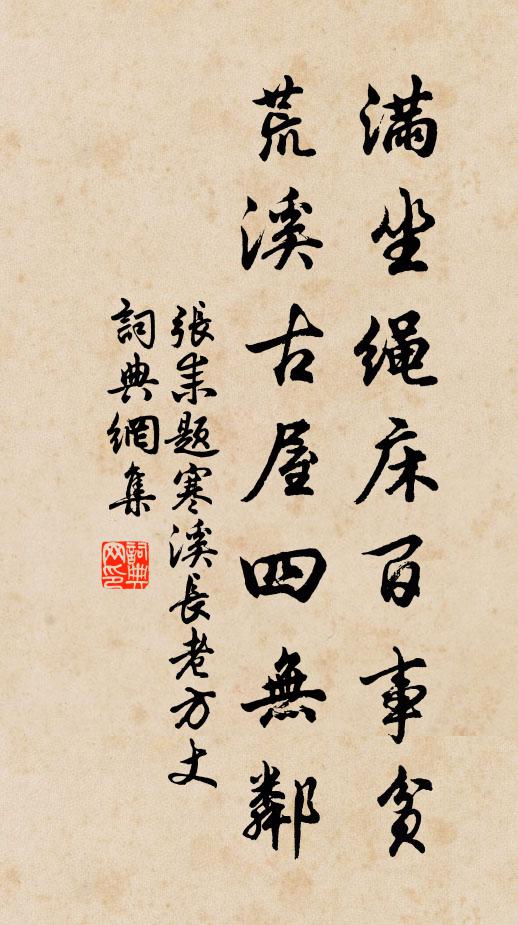 滿坐绳床百事貧
荒溪古屋四無鄰
張耒题寒溪長老方丈
詞典網集
詞典网印